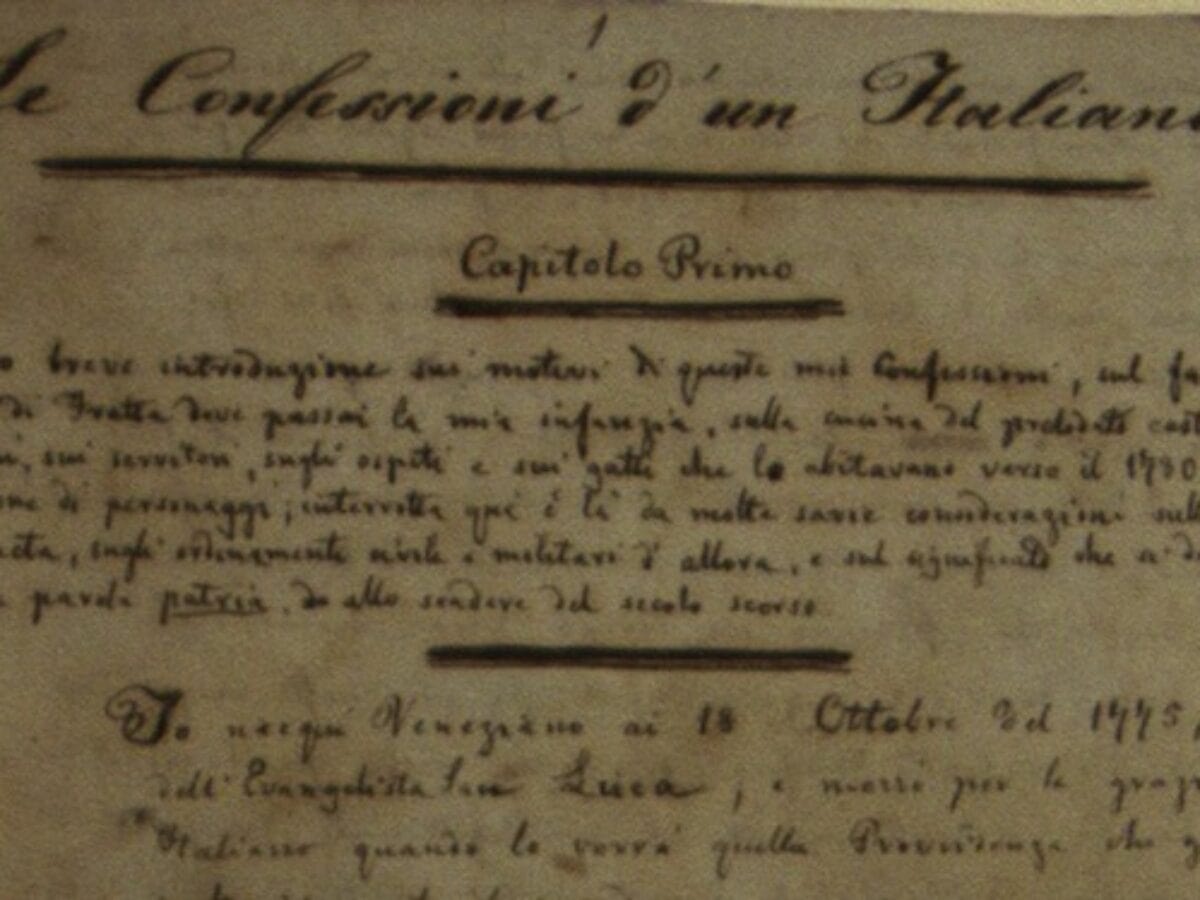 Le Confessioni d'un Italiano
Capitolo Primo
breve introduzione sui motivi di queste mie Confessioni, sul
di Fratta dove passai la mia infanzia, sulla cucina del prelodato
sui servitori, sugli ospiti e sui gatti che lo abitavano verso il 1780
di personaggi; interrotta qui e là da molte savie considerazioni
sugli ordinamenti civili e militari d'allora, e sul significato che
parola patria, da allo scadere del secolo scorso
Io nacqui Veneziano ai 18 Ottobre del 1775,
dell'Evangelista San Luca; e morrò per la
Italiano quando lo vorrà quella Provvidenza che